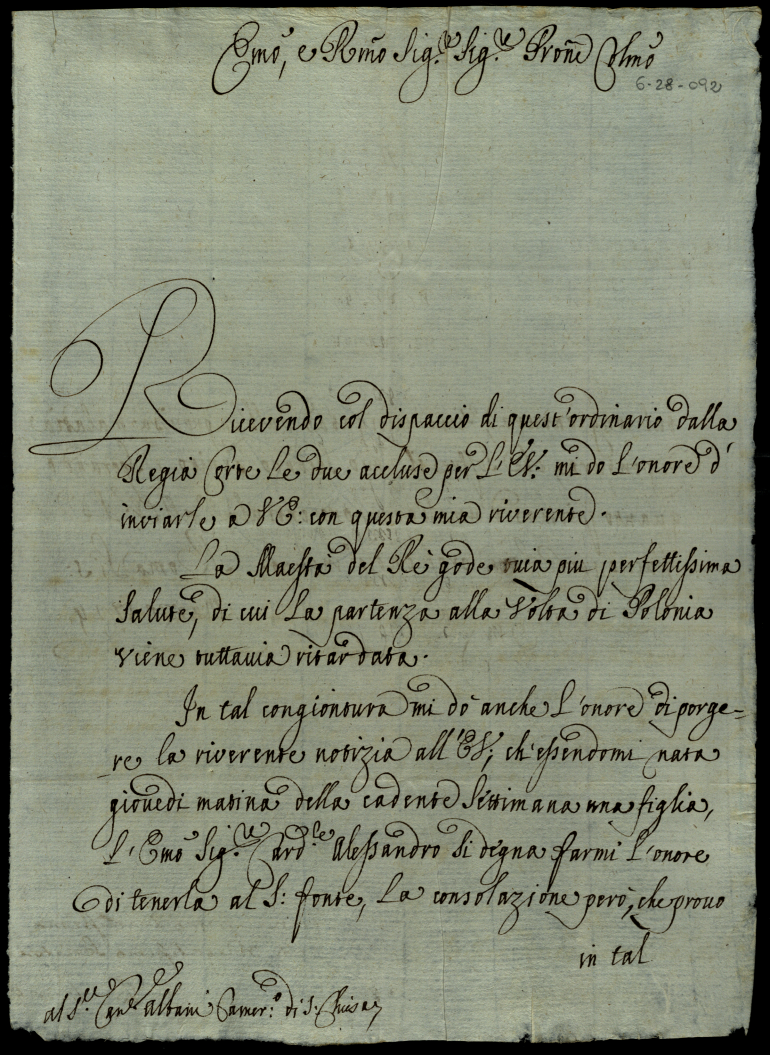 Emo, e Rmo Sig.re Sig.re Prone Colmo
6-28-092
Ricevendo col dispaccio di quest'ordinario dalla
Regia Corte le due accluse per l'EV: mi do l'onore d'
inviarle a VE: con questa mia riverente.
La Maestà del Rè gode tuia piu perfettissima
salute, di cui la partenza alla volta di Polonia
viene tuttauia ritardata.
In tal congiontura mi dò anche l'onore di porge=
re la riverente notizia all'EV; ch'essendomi nata
giouedi matina della cadente settimana una figlia,
l'Emo Sig.re Card.le Alessandro si degna farmi l'onore
di tenerla al S: fonte, la consolazione però, che prouo
in tal
al S.re Albani Camer.o di S. Chiesa